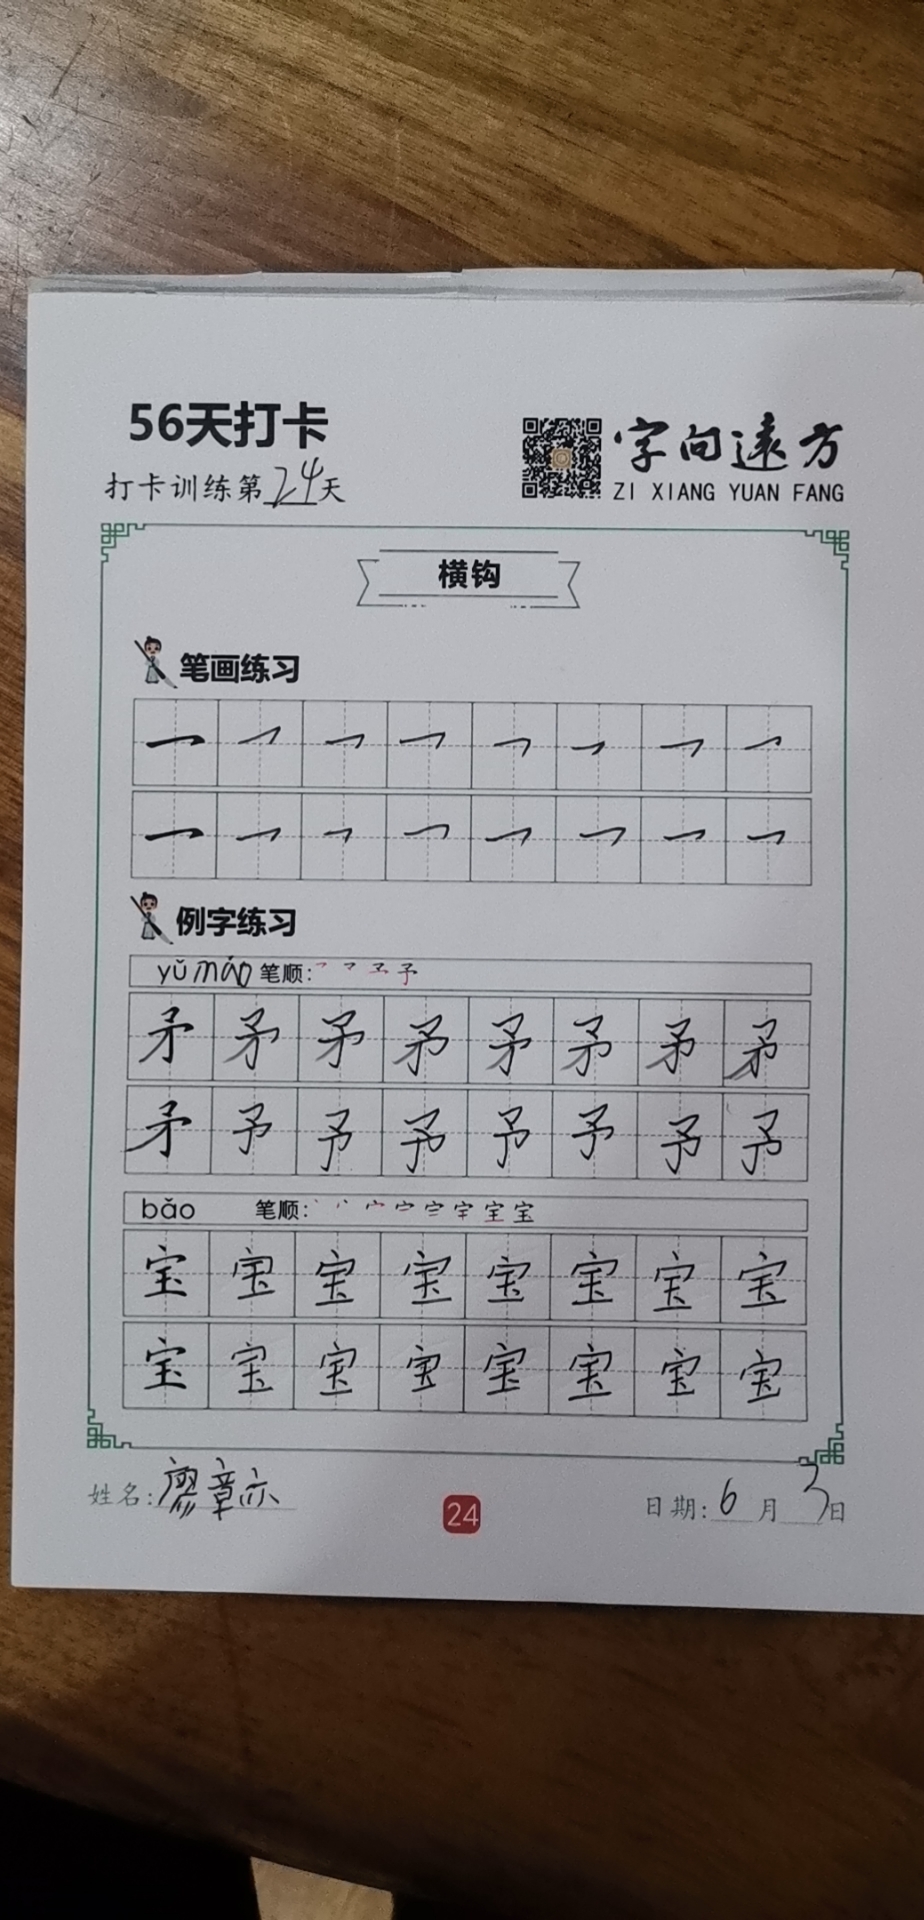 56天打卡
打卡训练第24天
字向遠方
ZI XIANG YUAN FANG
横钩
笔画练习
㇖ ㇖ ㇖ ㇖ ㇖ ㇖ ㇖ ㇖
㇖ ㇖ ㇖ ㇖ ㇖ ㇖ ㇖ ㇖
例字练习
yǔ máo 笔顺: 予
矛 矛 矛 矛 矛 矛 矛 矛
矛 予 予 予 予 予 予 予
bǎo 笔顺: 宝
宝 宝 宝 宝 宝 宝 宝 宝
宝 宝 宝 宝 宝 宝 宝 宝
姓名: 廖章亦
24
日期: 6 月 3 日